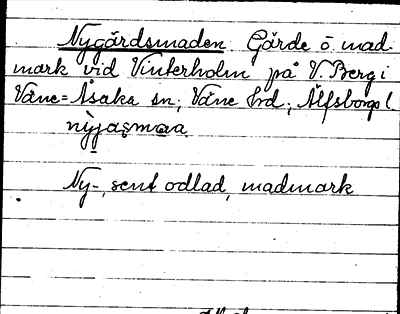 Nygårdsmaden Gärde o. mad-
mark vid Vinterholm på V. Berg i
Väne=Åsaka sn; Väne hd; Älfsborgs l.
Ny-, sent odlad, madmark